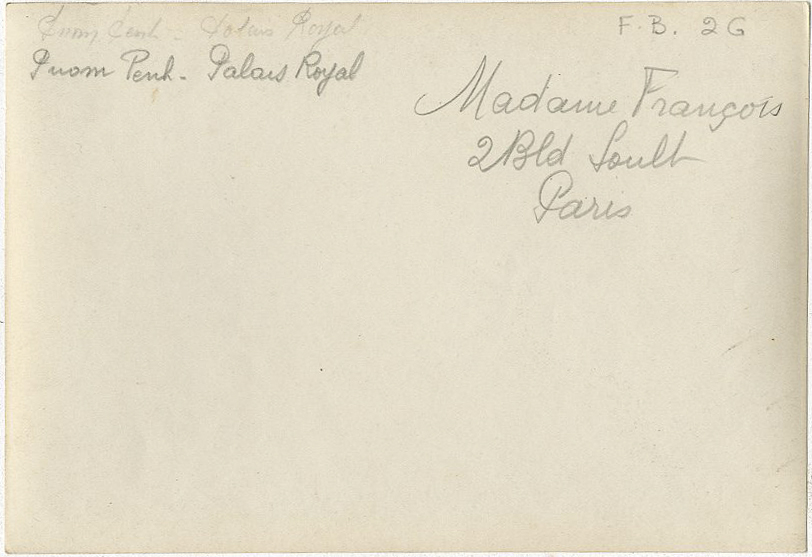 Pnom Penh - Palais Royal
F. B. 26
Pnom Penh - Palais Royal
Madame François
2 Bld Soult
Paris